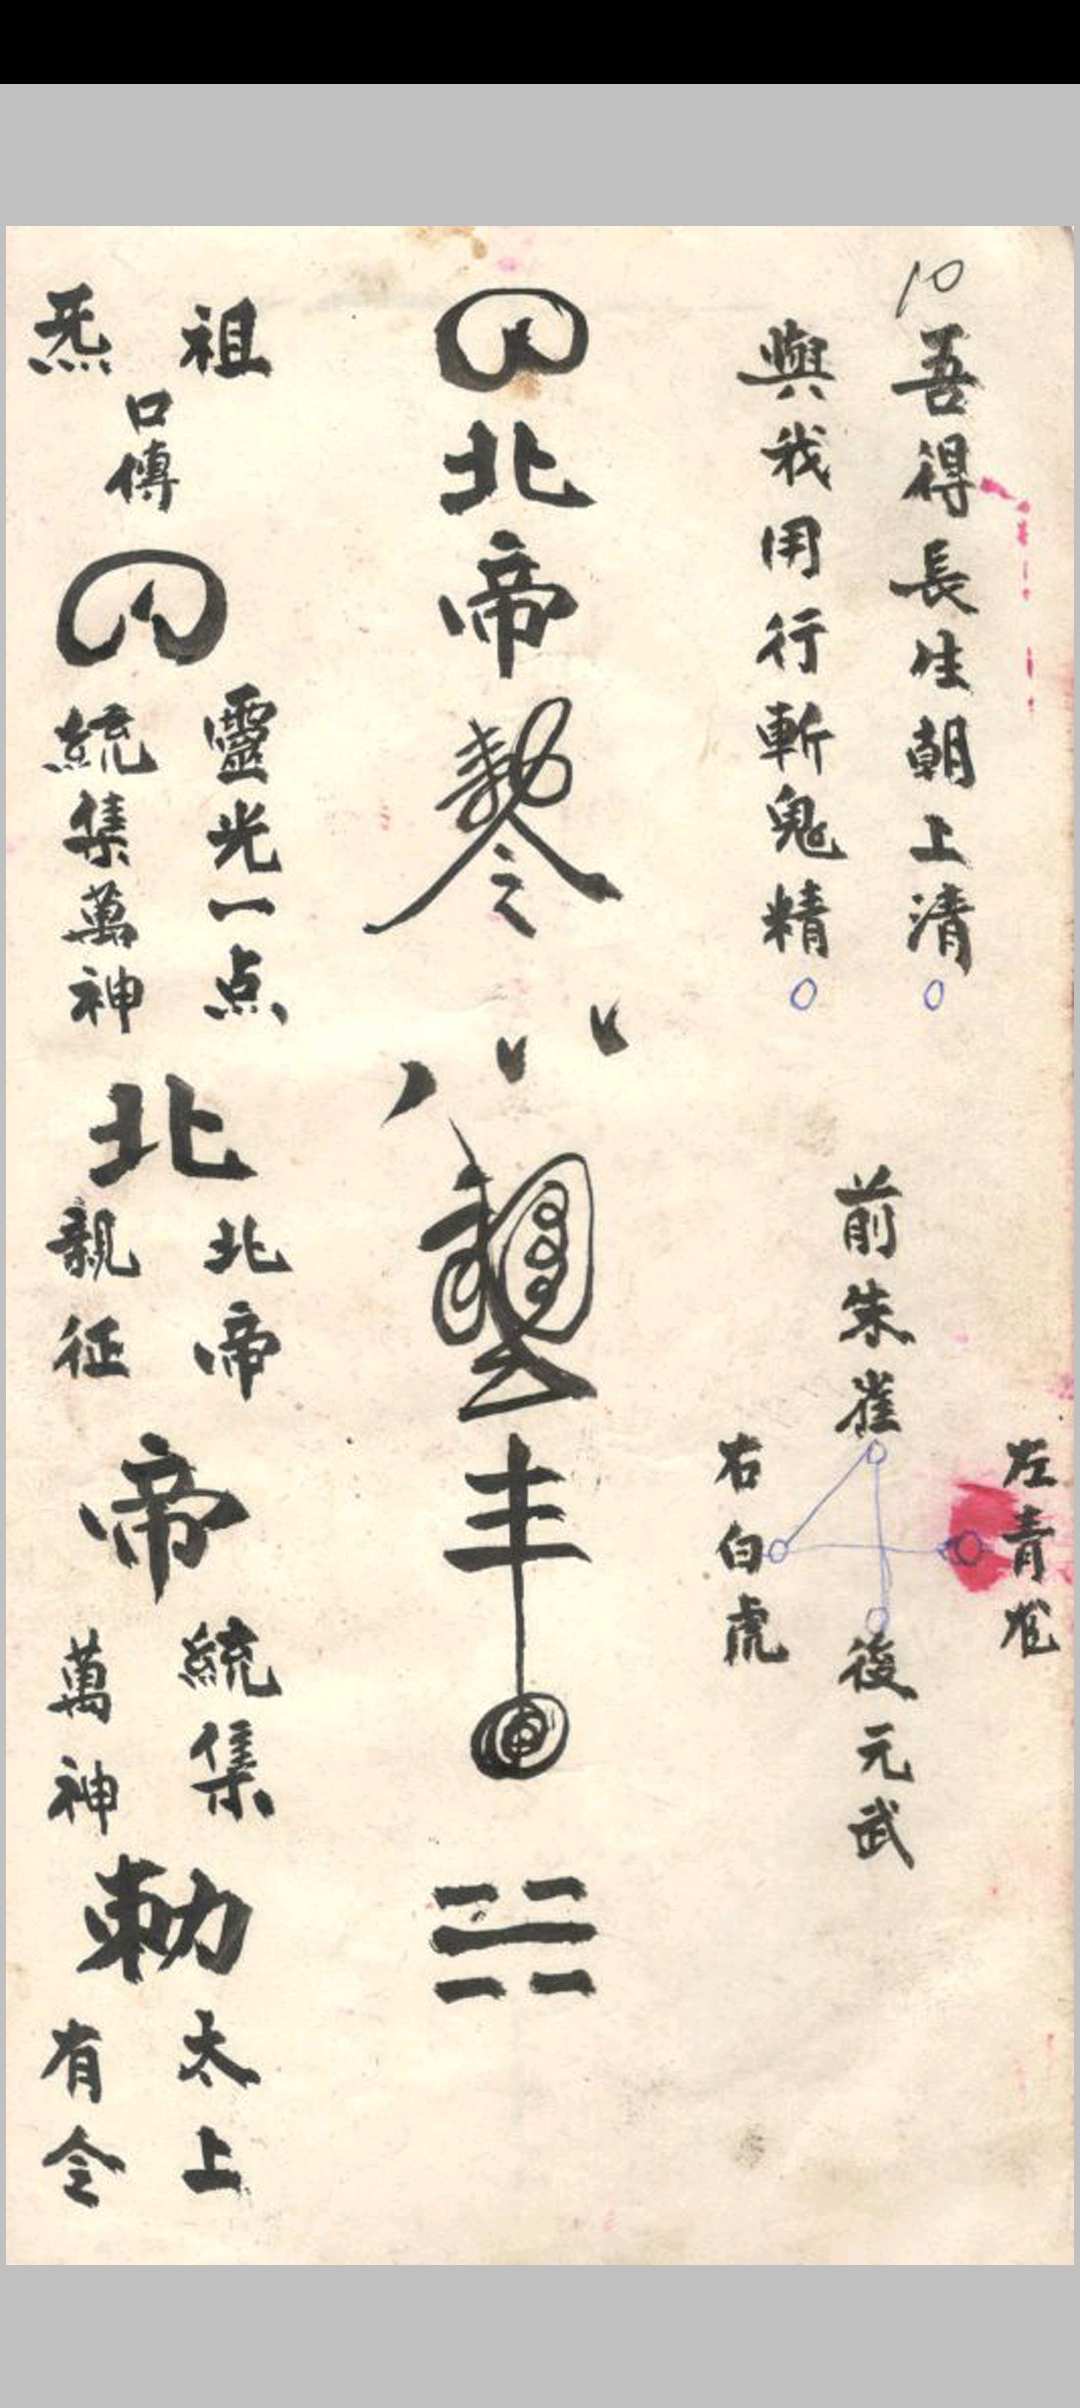 10
吾得長生朝上清
與我用行斬鬼精
前朱雀
左青龙
右白虎
後元武
北帝
勅令
祖炁
口傳
靈光一点
統集萬神
北
北帝
親征
帝
統集
萬神
勅
太上
有令